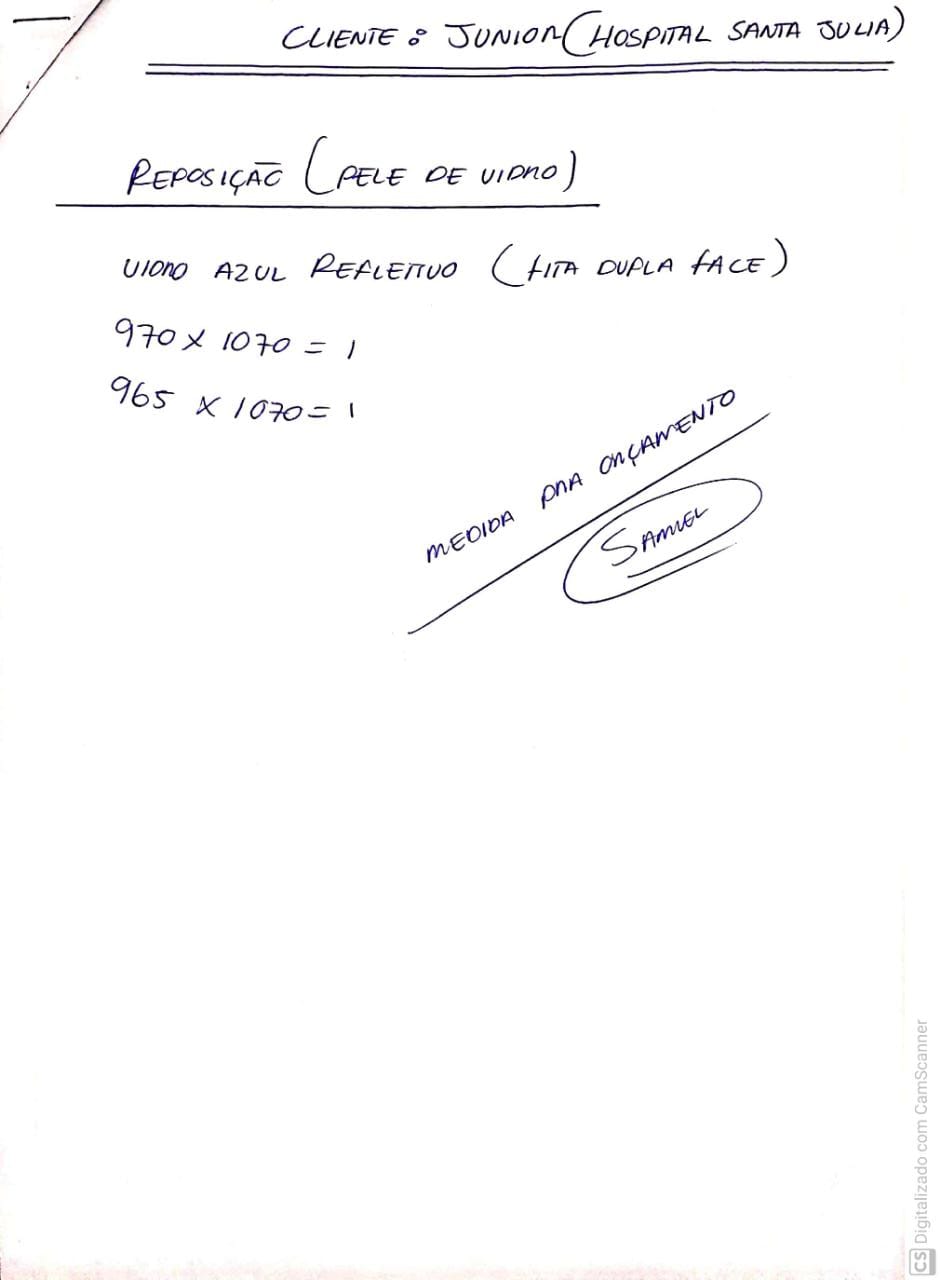 CLIENTE: JUNIOR (HOSPITAL SANTA JULIA)
REPOSIÇÃO (PELE DE VIDRO)
VIDRO AZUL REFLETIVO (FITA DUPLA FACE)
970 x 1070 = 1
965 x 1070 = 1
MEDIDA PRA ORÇAMENTO
SAMUEL
CS Digitalizado com CamScanner